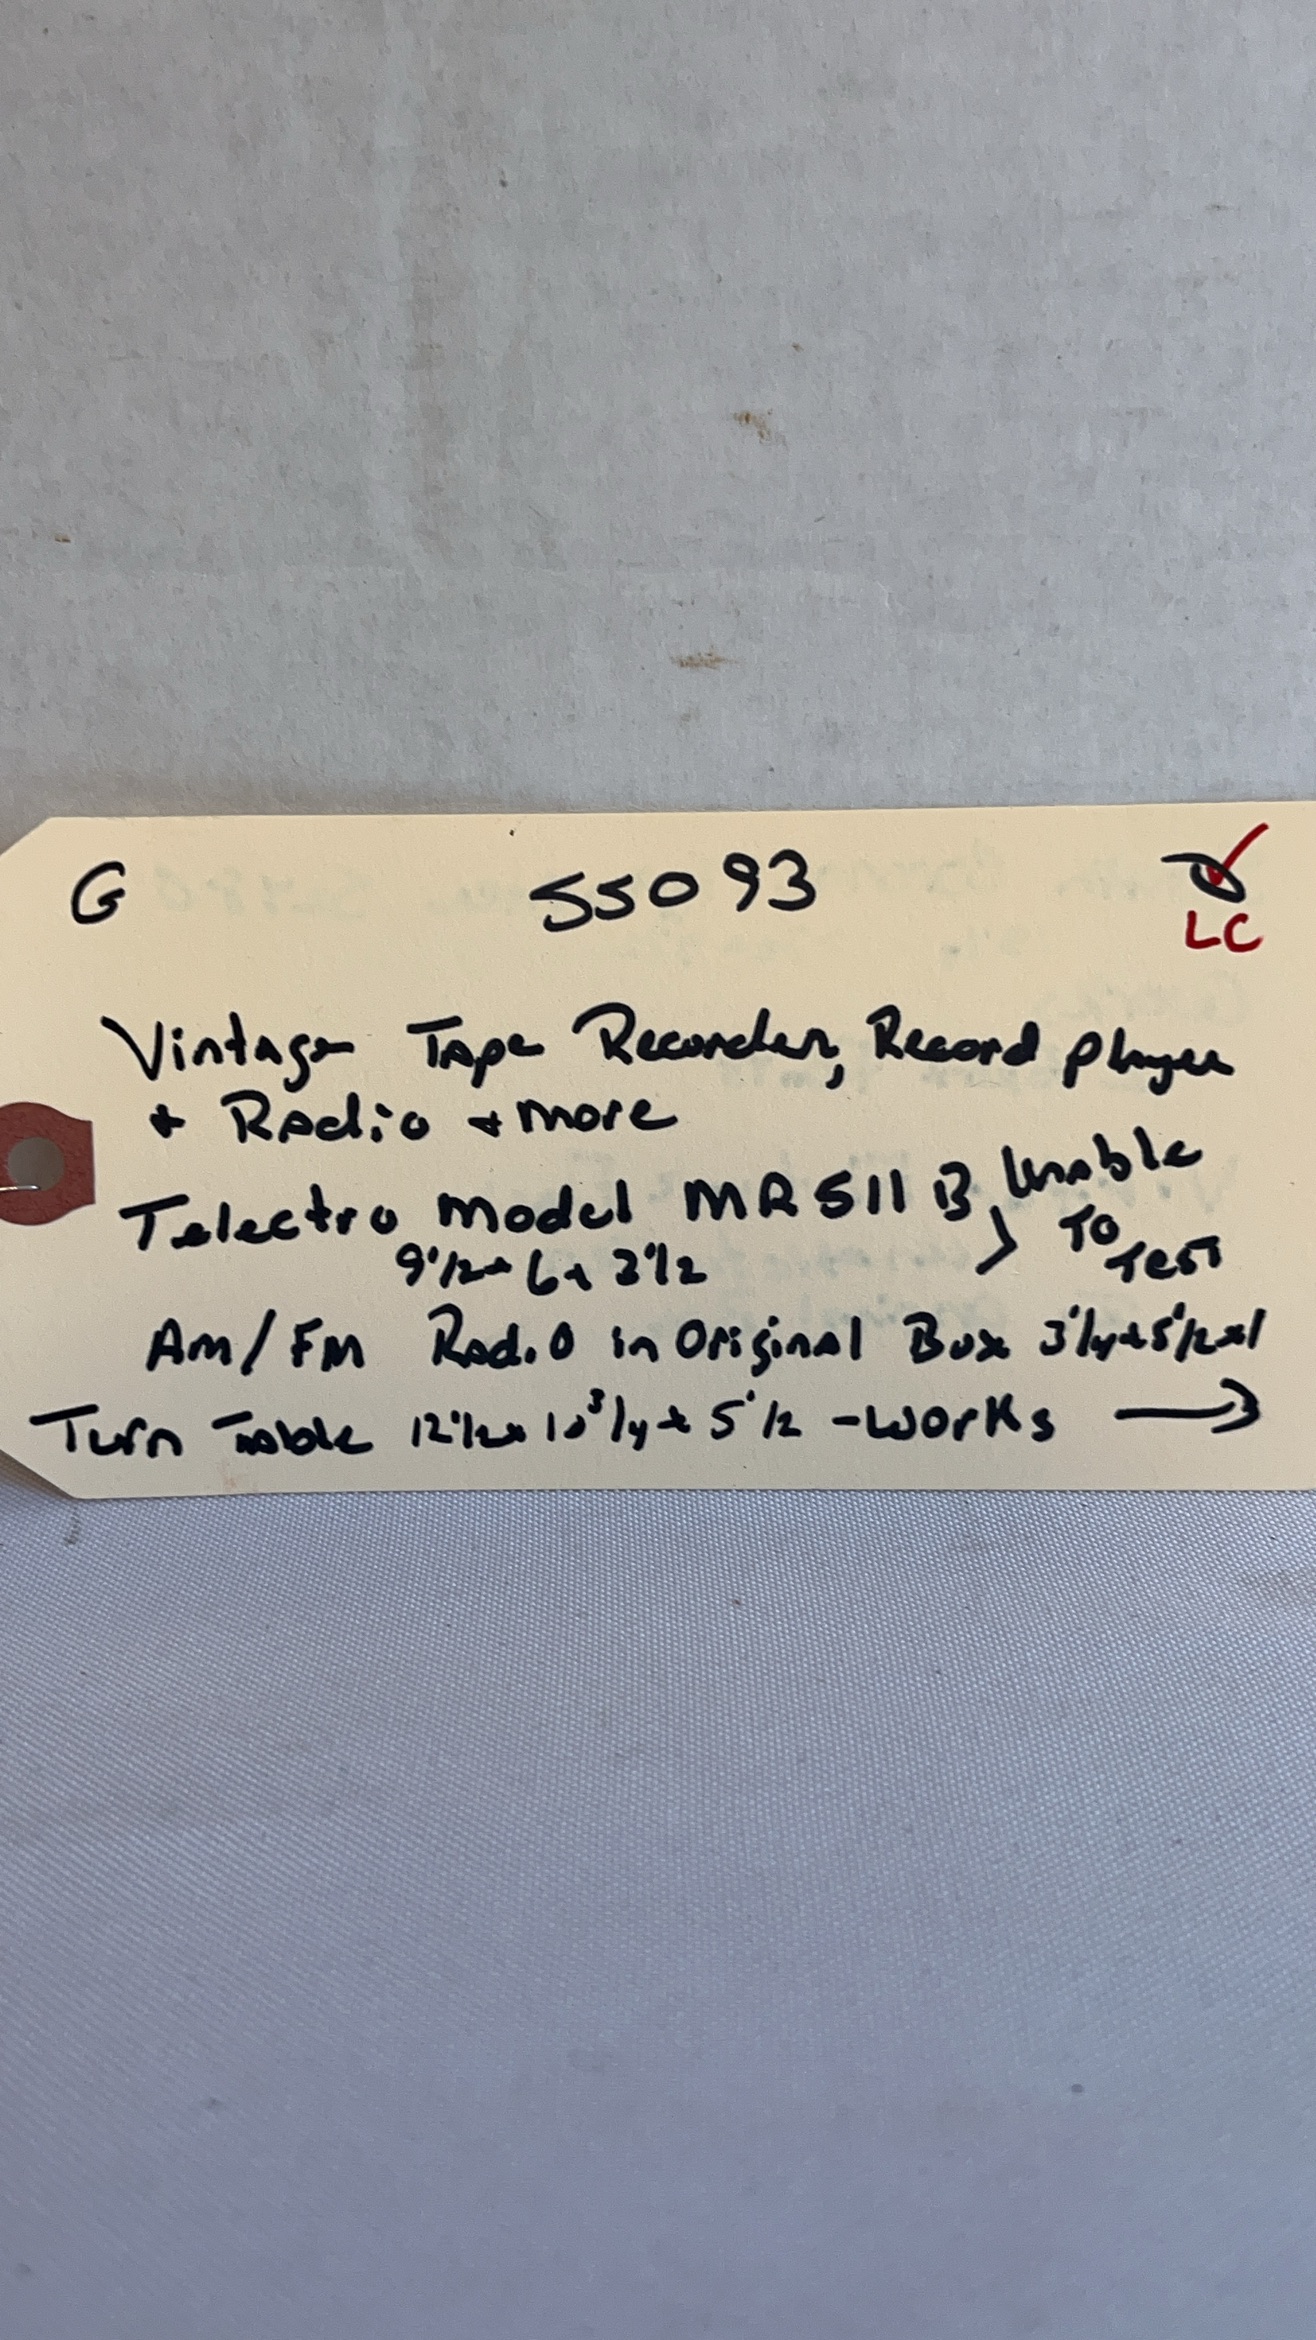 G 55093
LC
Vintage Tape Recorder, Record player
+ Radio + more
Telectro Model MR511B, Unable
To
Test
9 1/2 x 6 x 3 1/2
Am/FM Radio in Original Box 3 1/4 x 5 1/2 x 1
Turn Table 12 1/2 x 10 3/4 x 5 1/2 - Works →